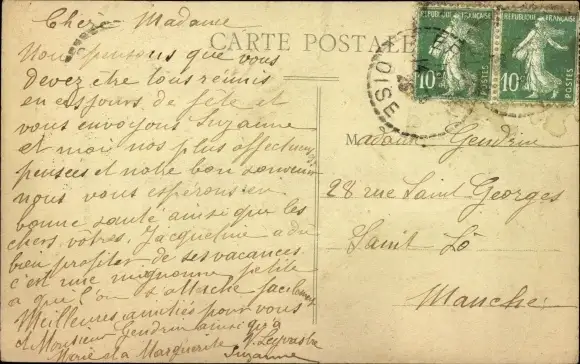 Chère Madame
Nous pensons que vous
devez être tous réunis
en ces jours de fête et
vous envoyons Suzanne
et moi nos plus affectueuses
pensées et notre bon souvenir
nous vous espérons en
bonne santé ainsi que les
chers votres. Jacqueline a dû
bien profiter de ses vacances
c'est une mignonne petite
a qui l'on s'attache facilement
Meilleures amitiés pour vous
et Monsieur Gendrin ainsi qu'à
Marie et a Marguerite
Suzanne
CARTE POSTALE
REPUBLIQUE FRANÇAISE
10c
POSTES
REPUBLIQUE FRANÇAISE
10c
POSTES
OISE
Madame Gendrin
28 rue Saint Georges
Saint Lô
Manche